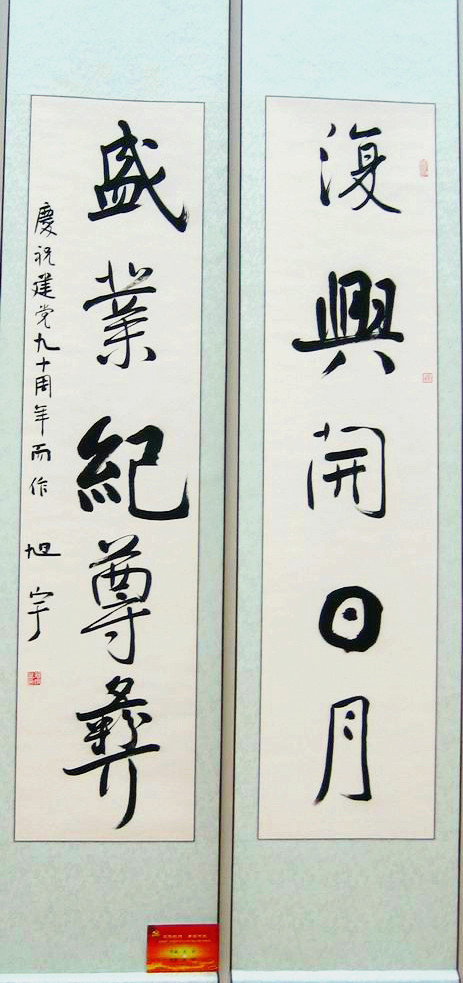 復興開日月
盛業紀尊彝
慶祝建党九十周年而作
旭宇